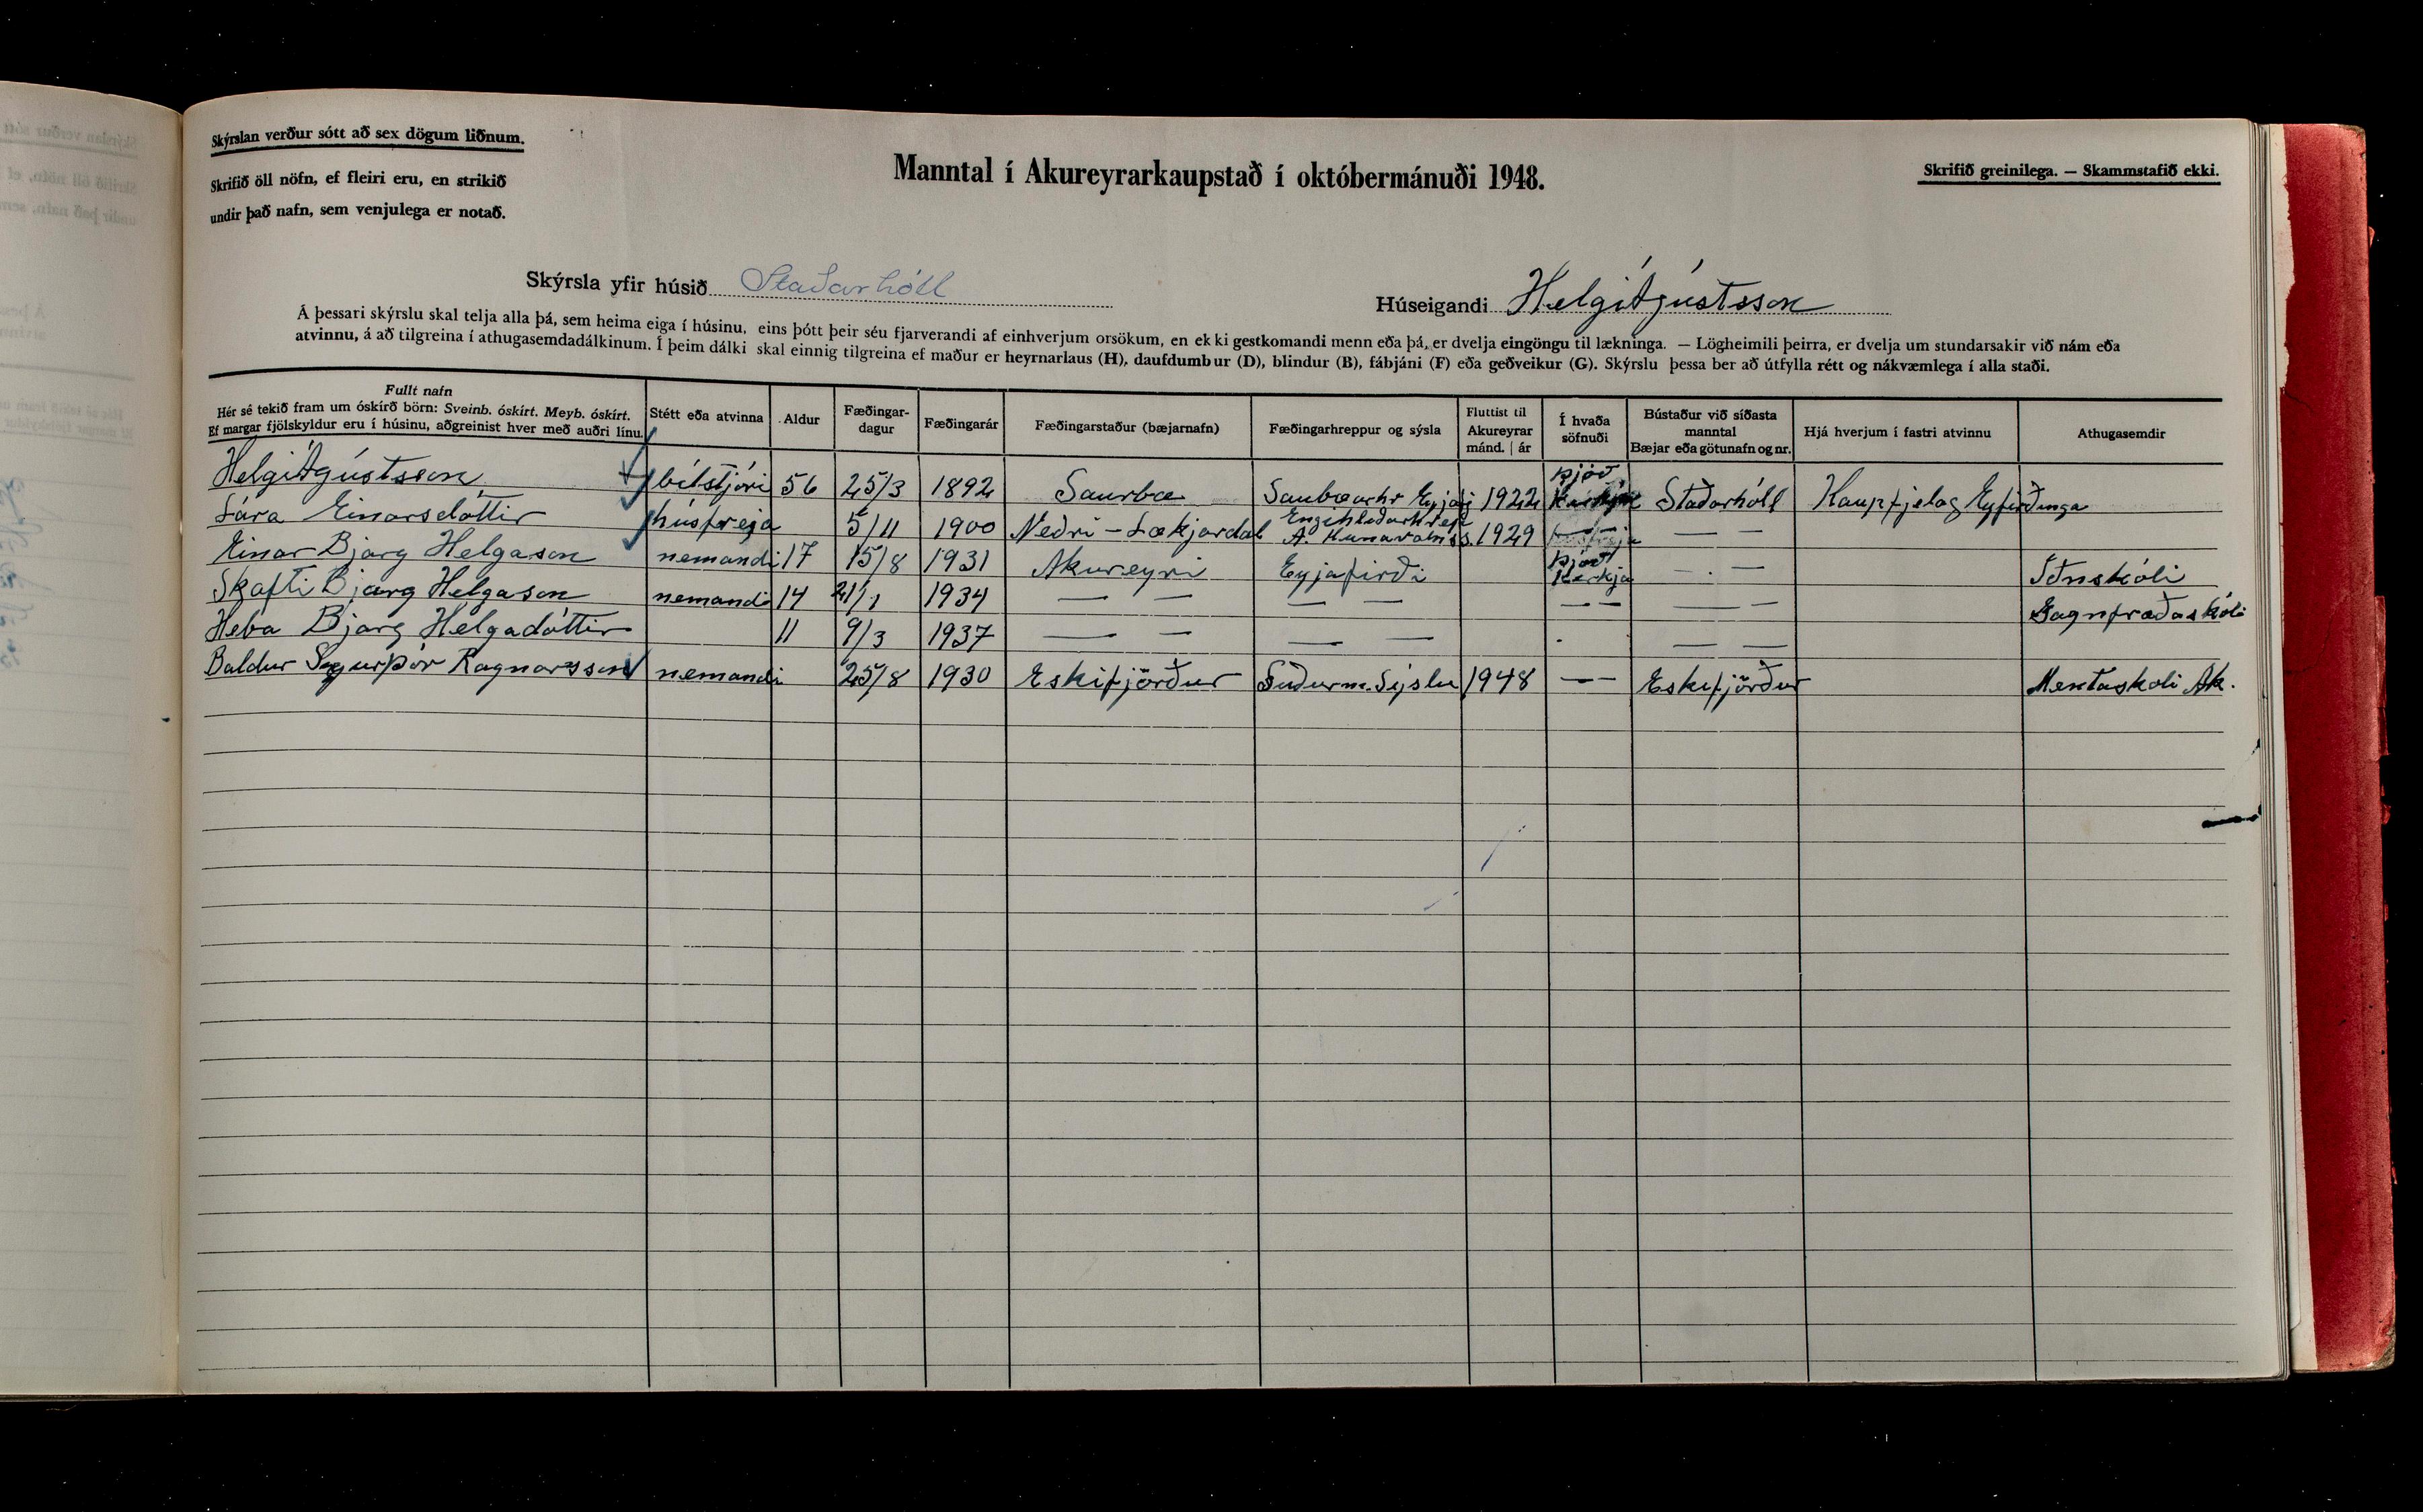 Skýrslan verður sótt að sex dögum liðnum.
Skrifið öll nöfn, ef fleiri eru, en strikið
undir það nafn, sem venjulega er notað.
Manntal í Akureyrarkaupstað í októbermánuði 1948.
Skrifið greinilega. — Skammstafið ekki.
Skýrsla yfir húsið Staðarhóll
Húseigandi Helgi Ágústsson
Á þessari skýrslu skal telja alla þá, sem heima eiga í húsinu, eins þótt þeir séu fjarverandi af einhverjum orsökum, en ekki gestkomandi menn eða þá, er dvelja eingöngu til lækninga. — Lögheimili þeirra, er dvelja um stundarsakir við nám eða
atvinnu, á að tilgreina í athugasemdadálkinum. Í þeim dálki skal einnig tilgreina ef maður er heyrnarlaus (H), daufdumbur (D), blindur (B), fábjáni (F) eða geðveikur (G). Skýrslu þessa ber að útfylla rétt og nákvæmlega í alla staði.
Fullt nafn
Hér sé tekið fram um óskírð börn: Sveinb. óskírt. Meyb. óskírt.
Ef margar fjölskyldur eru í húsinu, aðgreinist hver með auðri línu.
Stétt eða atvinna
Aldur
Fæðingar-
dagur
Fæðingarár
Fæðingarstaður (bæjarnafn)
Fæðingarhreppur og sýsla
Fluttist til
Akureyrar
mánd. | ár
Í hvaða
söfnuði
Bústaður við síðasta
manntal
Bæjar eða götunafn og nr.
Hjá hverjum í fastri atvinnu
Athugasemdir
Helgi Ágústsson bílstjóri 56 25/3 1892 Saurbæ Saubæarhr Eyjafj 1922 þjóð Staðarhóll Kaupfjelag Eyfirðinga
Lára Einarsdóttir húsfreja 5/11 1900 Neðri-Lækjardal Engihlíðarhrepp A. Hunavatnss. 1929 — —
Einar Bjarg Helgason nemandi 17 15/8 1931 Akureyri Eyjafirði þjóð Kirkja — . — Iðnskóli
Skafti Bjarg Helgason nemandi 14 21/1 1934 — — — — — — — — Gagnfræðaskóli
Heba Bjarg Helgadóttir 11 9/3 1937 — — — — — —
Baldur Sigurþór Ragnarsson nemandi 25/8 1930 Eskifjörður Suðurm. Sýslu 1948 — — Eskifjörður Mentaskoli Ak.